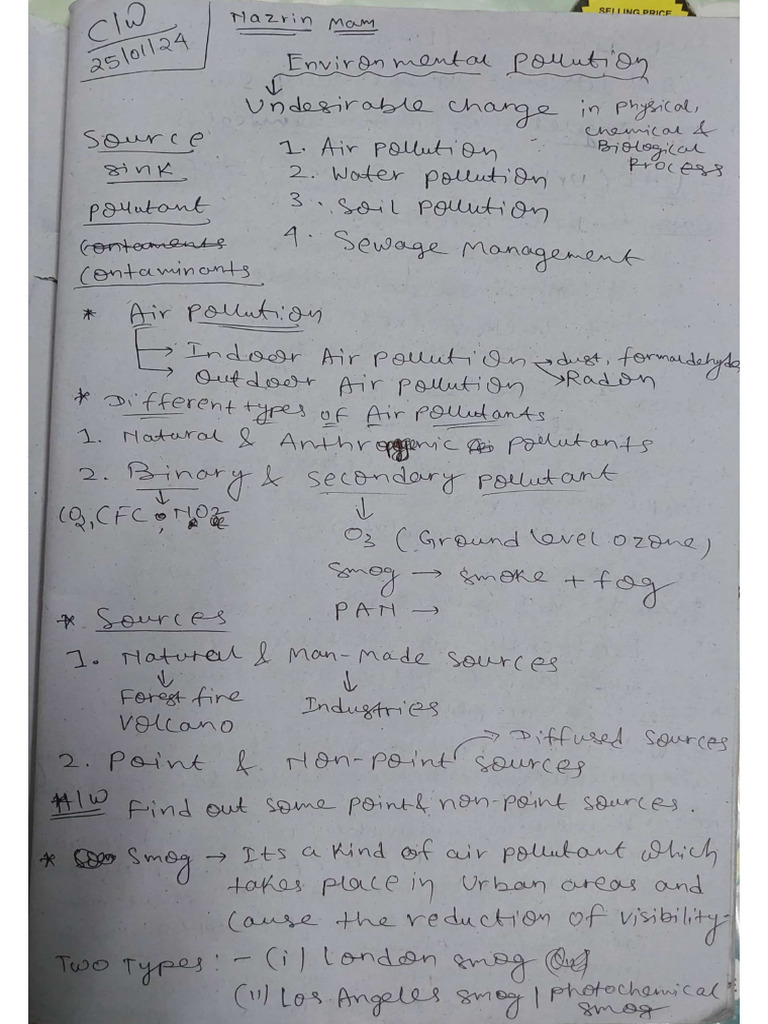 SELLING PRICE
C/W
25/01/24
Nazrin Mam
Environmental pollution
Undesirable change in physical,
chemical &
Biological
Process
Source
sink
pollutant
Contaminants
1. Air pollution
2. Water pollution
3. Soil pollution
4. Sewage Management
* Air pollution
→ Indoor Air pollution → dust, formaldehyde
→ Radon
→ Outdoor Air pollution
* Different types of Air pollutants
1. Natural & Anthropogenic pollutants
2. Binary & secondary pollutant
CO2, CFC, NO2
O3 (Ground level ozone)
Smog → smoke + fog
PAN →
* Sources
1. Natural & Man-Made sources
Forest fire
Volcano
Industries
2. Point & Non-point sources
→ Diffused sources
H/W Find out some point & non-point sources.
* Smog → Its a kind of air pollutant which
takes place in Urban areas and
cause the reduction of visibility-
Two Types: - (i) London smog
(ii) Los Angeles smog / photochemical
smog